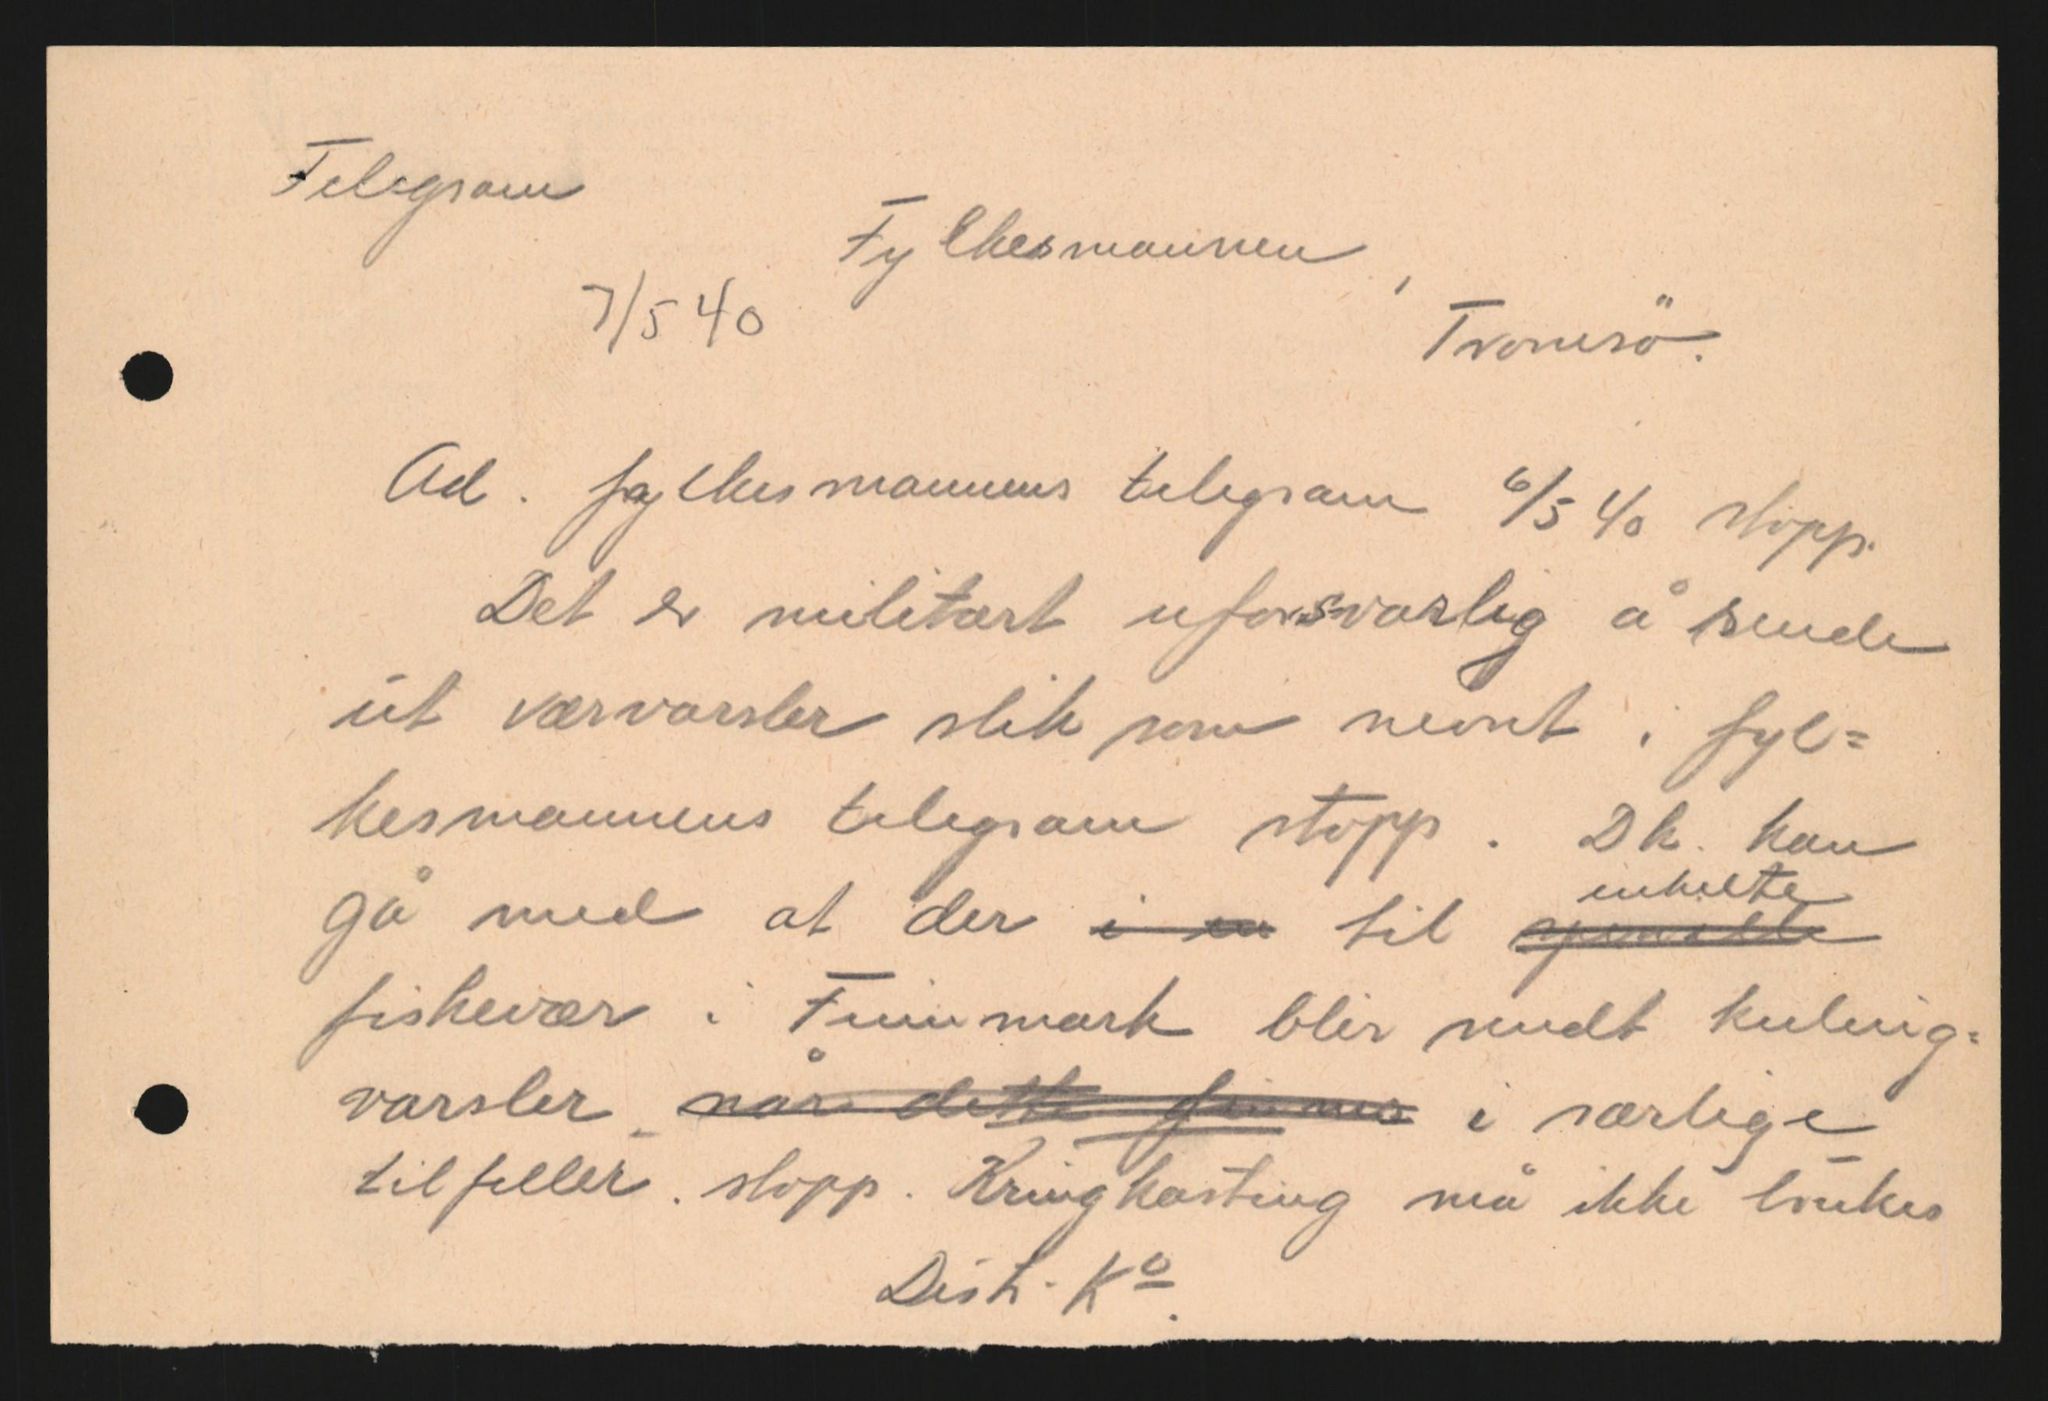 Telegram
Fylkesmannen,
7/5 40
Tromsö.
Ad. fylkesmannens telegram 6/5 40 stopp.
Det er militært uforsvarlig å sende
ut værvarsler slik som nevnt i fyl=
kesmannens telegram stopp. Dk. kan
enkelte
gå med at der i en til
fiskevær i Finnmark blir sendt kuling=
varsler når dette finnes i særlige
tilfeller. stopp. Kringkasting må ikke brukes
Distr. Ko.